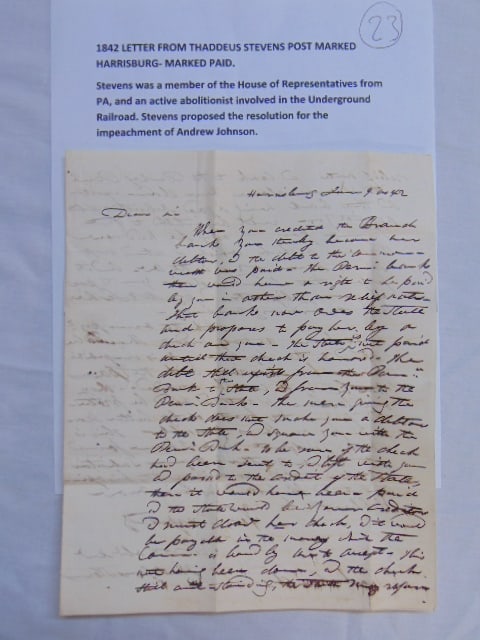 23
1842 LETTER FROM THADDEUS STEVENS POST MARKED
HARRISBURG- MARKED PAID.
Stevens was a member of the House of Representatives from
PA, and an active abolitionist involved in the Underground
Railroad. Stevens proposed the resolution for the
impeachment of Andrew Johnson.
Harrisburg 9 42
Dear sir
When you credited the Branch
bank you thereby became her
debtor, & the debt to the
was paid - the Penn bank
then would have a right to be paid
by you in other than relief notes -
That bank now owes the State
and proposes to pay her, by a
check on you - The State is not paid
until that check is honored - The
debt still exists from the Penn
Bank to State, & from you to the
Penn Bank - the mere giving the
check does not make you a debtor
to the State, & square you with the
Penn Bank - To be sure if the check
had been sent to & left with you
& passed to the credit of the State,
then it would have been a
& the State would
must her check, & it would
be payable in the money which the
is bound by law to accept - This
not having been done, & the check
still out-standing, the State may